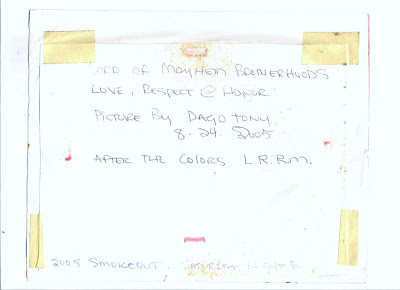 LORD OF MAYHEM BROTHERHOODS
LOVE, RESPECT @ HONOR
PICTURE BY DAGO TONY
8.24. 2005
AFTER THE COLORS L.R.R.M.
2005 SMOKEOUT. SATURDAY